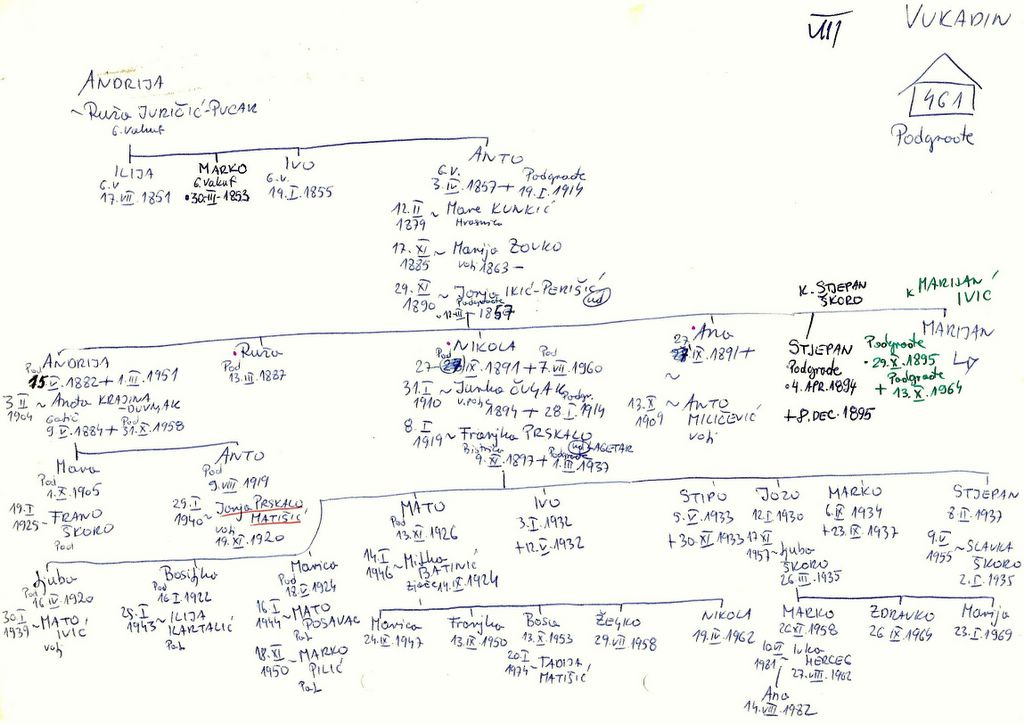 VIII
VUKADIN
461
Podgrade
ANDRIJA
~ Ruža JURIČIĆ-PUCAR
G. Vakuf
ILIJA
G.V.
17.VII.1851
MARKO
G. Vakuf
•30.III-1853
IVO
G.V.
19.I.1855
ANTO
G.V.
3.IV.1857 + 19.I.1914
Podgrade
12.II
1879 ~ Mare KUNKIĆ
Mrasnica
17.XI
1885 ~ Marija ZOVKO
volj 1863 –
29.XI
1890 ~ Janja IKIĆ-PERIŠIĆ
ud
Podgrade
K. STJEPAN
ŠKORO
K MARIJAN
IVIĆ
ANDRIJA
Pod
15.V.1882 + 1.III.1951
3.II
1904 ~ Aneta KRAJINA
-DUVNJAK
9.V.1884 + 31.X.1958
Pod
Ruža
Pod
13.III.1887
NIKOLA
27.IX.1891 + 7.VII.1960
Pod
31.I
1910 ~ Janka ČULJAK
Podgr.
1894 + 28.I.1914
8.I
1919 ~ Franjka PRSKALO
ud LAGETAR
Bistrica
9.XI.1897 + 1.III.1937
Podgrade
Ana
27
IX.1891 +
~
13.X
1909 ~ ANTO
MILIČEVIĆ
volj
STJEPAN
Podgrade
•4.APR.1894
+ 8.DEC.1895
MARIJAN
Podgrade
•29.X.1895
Podgrade
+ 13.X.1964
Mara
Pod
1.X.1905
19.I
1925 ~ FRANO
ŠKORO
Pod
ANTO
Pod
9.VIII.1919
29.I
1940 ~ Janja PRSKALO
MATIŠIĆ
volj
19.XI.1920
Ljuba
Pod
16.IV.1920
30.I
1939 ~ MATO
IVIĆ
volj
Bosiljka
Pod
16.I.1922
25.I
1943 ~ ILIJA
KARTALIĆ
Pod
Marica
Pod
12.V.1924
16.I
1944 ~ MATO
POSAVAC
Pod
18.XI
1950 ~ MARKO
PILIĆ
Pod
MATO
Pod
13.XI.1926
14.I
1946 ~ Milka
BATINIĆ
14.IX.1924
IVO
3.I.1932
+12.V.1932
STIPO
5.V.1933
+30.XI.1933
JOZO
12.I.1930
17.XI
1957 ~ Ljuba
ŠKORO
26.III.1935
MARKO
6.IX.1934
+23.IX.1937
STJEPAN
8.II.1937
9.V
1955 ~ SLAVKA
ŠKORO
2.I.1935
Marica
24.IX.1947
Franjka
13.IX.1950
Bosa
13.X.1953
20.I
1974 ~ TADIJA
MATIŠIĆ
ŽELJKO
29.VII.1958
NIKOLA
19.IV.1962
MARKO
20.VI.1958
10.VI
1981 ~ Ivka
HERCEG
27.VIII.1962
Ana
14.VIII.1982
ZDRAVKO
26.IX.1964
Marija
23.I.1969